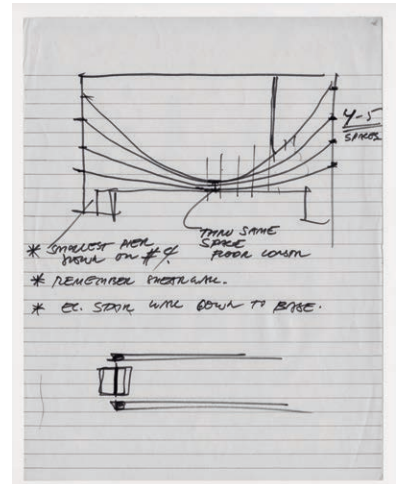 4-5
SPACES
THRU SAME
SPACE
FLOOR
* SMALLEST PIER
DOWN ON #4.
* REMEMBER SHEAR WALL.
* EL. STAIR WALL DOWN TO BASE.